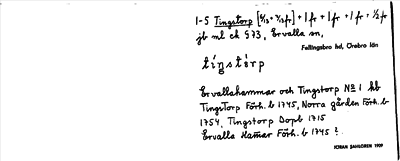 1-5 Tingstorp [5/13 + 7/13 fr] + 1 fr + 1 fr + 1 fr + 1/2 fr
jb nl ck § 73, Ervalla sn,
Fellingsbro hd, Örebro län
tíŋstórp
Ervallahammar och Tingstorp No 1 hb
Tingstorp Förh. b 1745, Norra gården Förh. b
1754, Tingstorp Dopb 1715
Ervalla Hamar Förh. b 1745 ?
JÖRAN SAHLGREN 1909